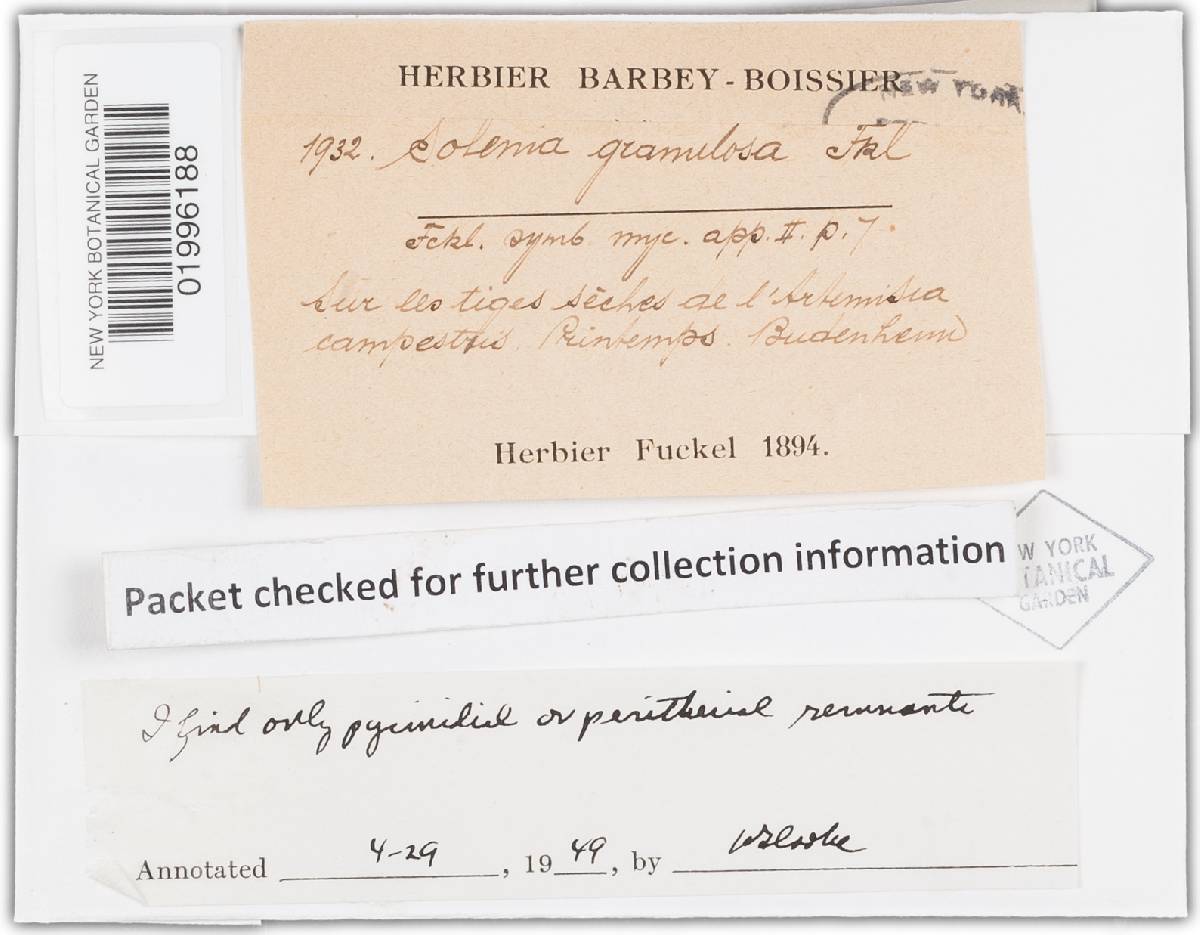 NEW YORK BOTANICAL GARDEN
01996188
HERBIER BARBEY-BOISSIER
NEW YORK
1932. Solenia granulosa Fkl
Fckl. symb myc. app. II. p. 7.
Sur les tiges sèches de l'Artemisia
campestris. Printemps. Budenheim
Herbier Fuckel 1894.
Packet checked for further collection information
W YORK
TANICAL
GARDEN
I find only pycnidial or perithecial remnants
Annotated 4-29, 1949, by WBCooke